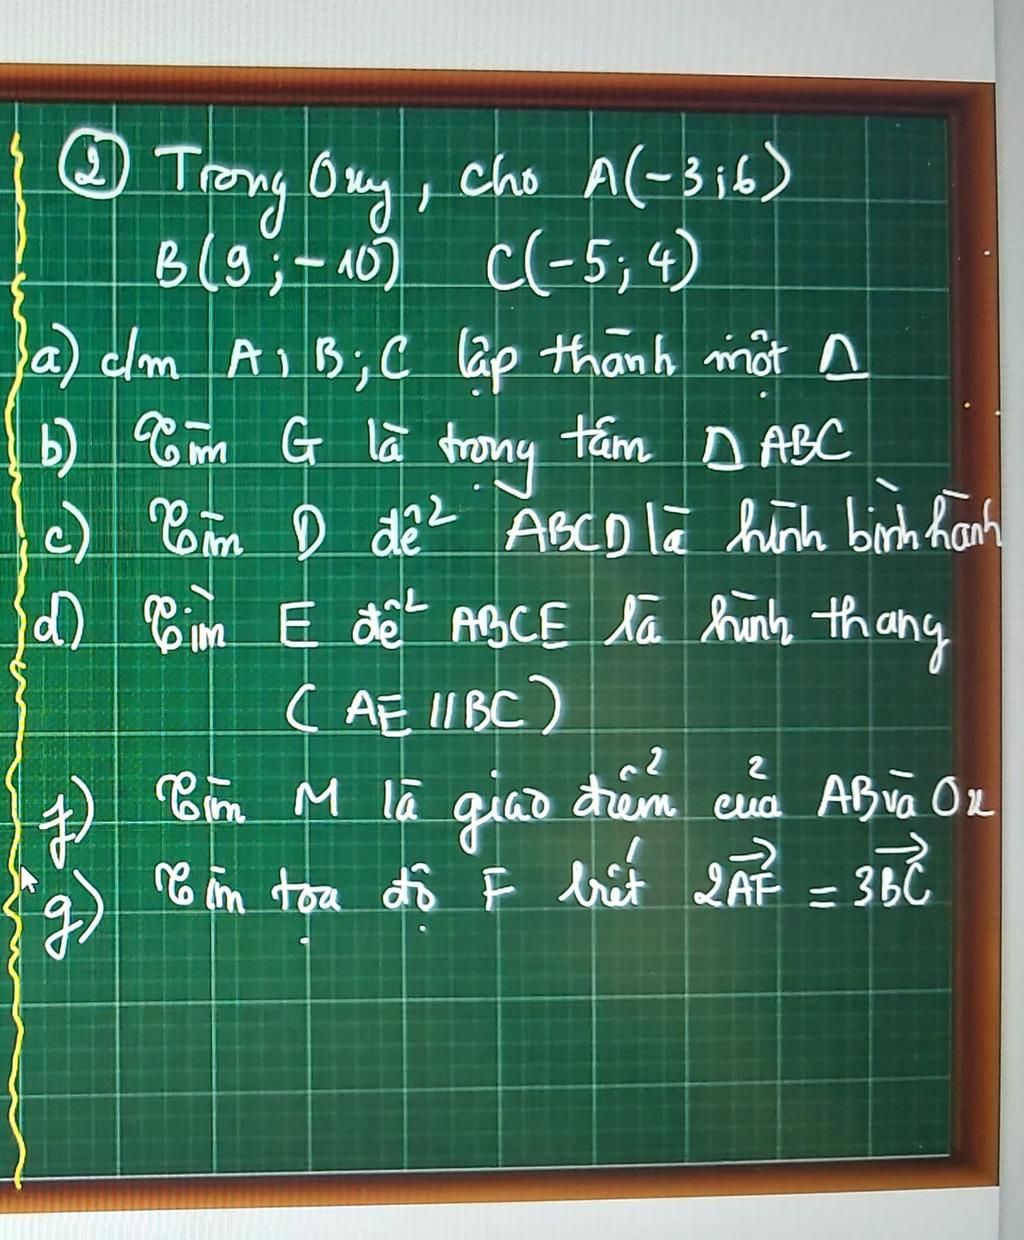 ② Trong Oxy, cho A(-3;6)
B(9;-10) C(-5;4)
a) c/m A; B; C lập thành một Δ
b) Tìm G là trọng tâm Δ ABC
c) Tìm D để ABCD là hình bình hành
d) Tìm E để ABCE là hình thang
(AE // BC)
f) Tìm M là giao điểm của AB và Ox
g) Tìm tọa độ F biết 2\overrightarrow{AF} = 3\overrightarrow{BC}